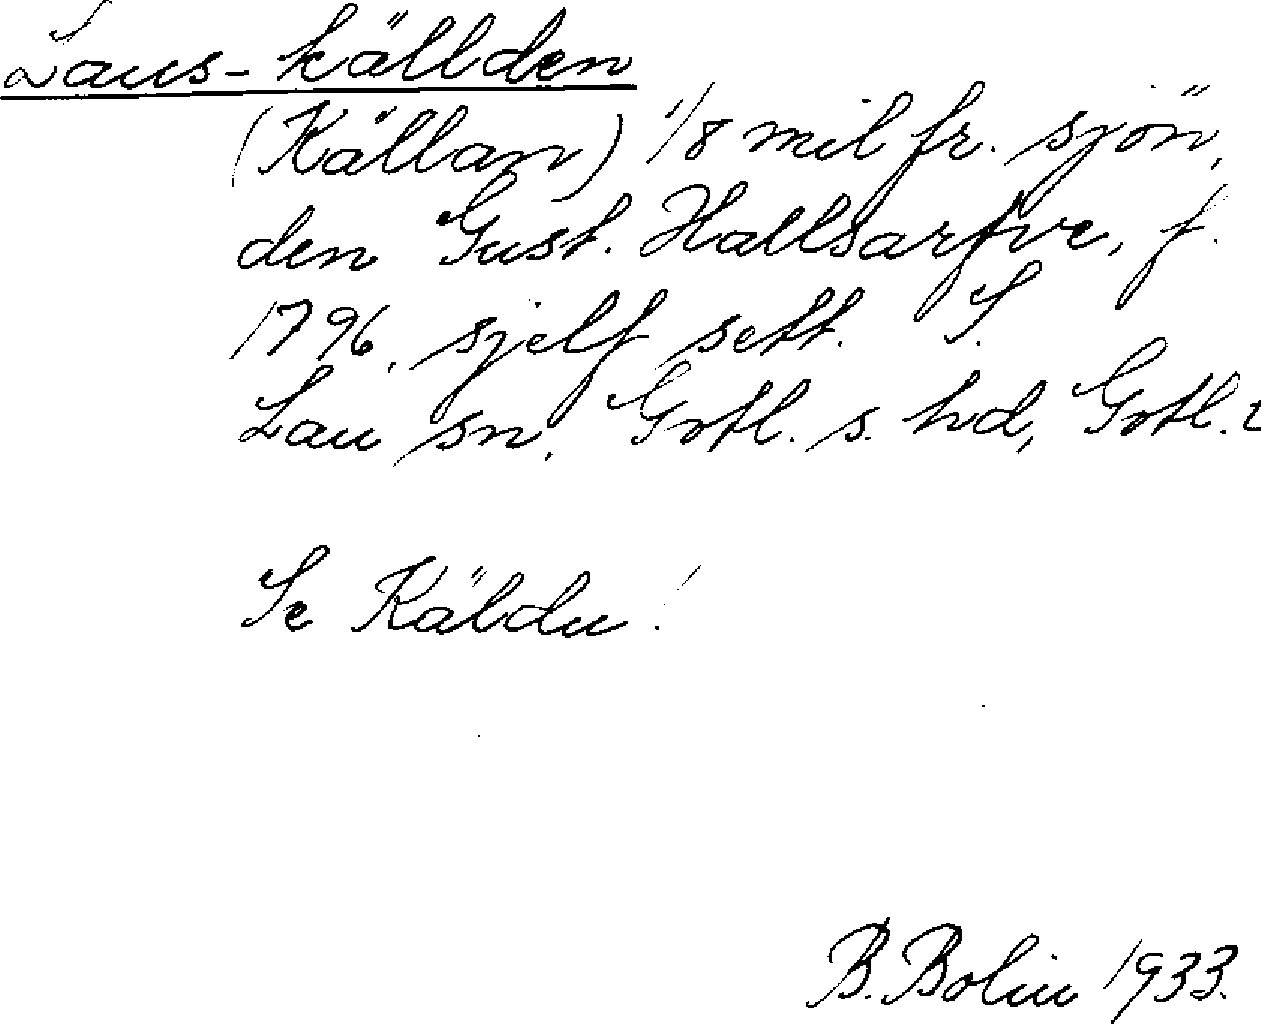 Laus-källden
(Källan) 1/8 mil fr. sjön,
den Gust. Hallsarfve, f.
1796, sjelf sett. S.
Lau sn, Gotl. s. hd, Gotl. l
Se Käldu!
B. Bolin 1933.